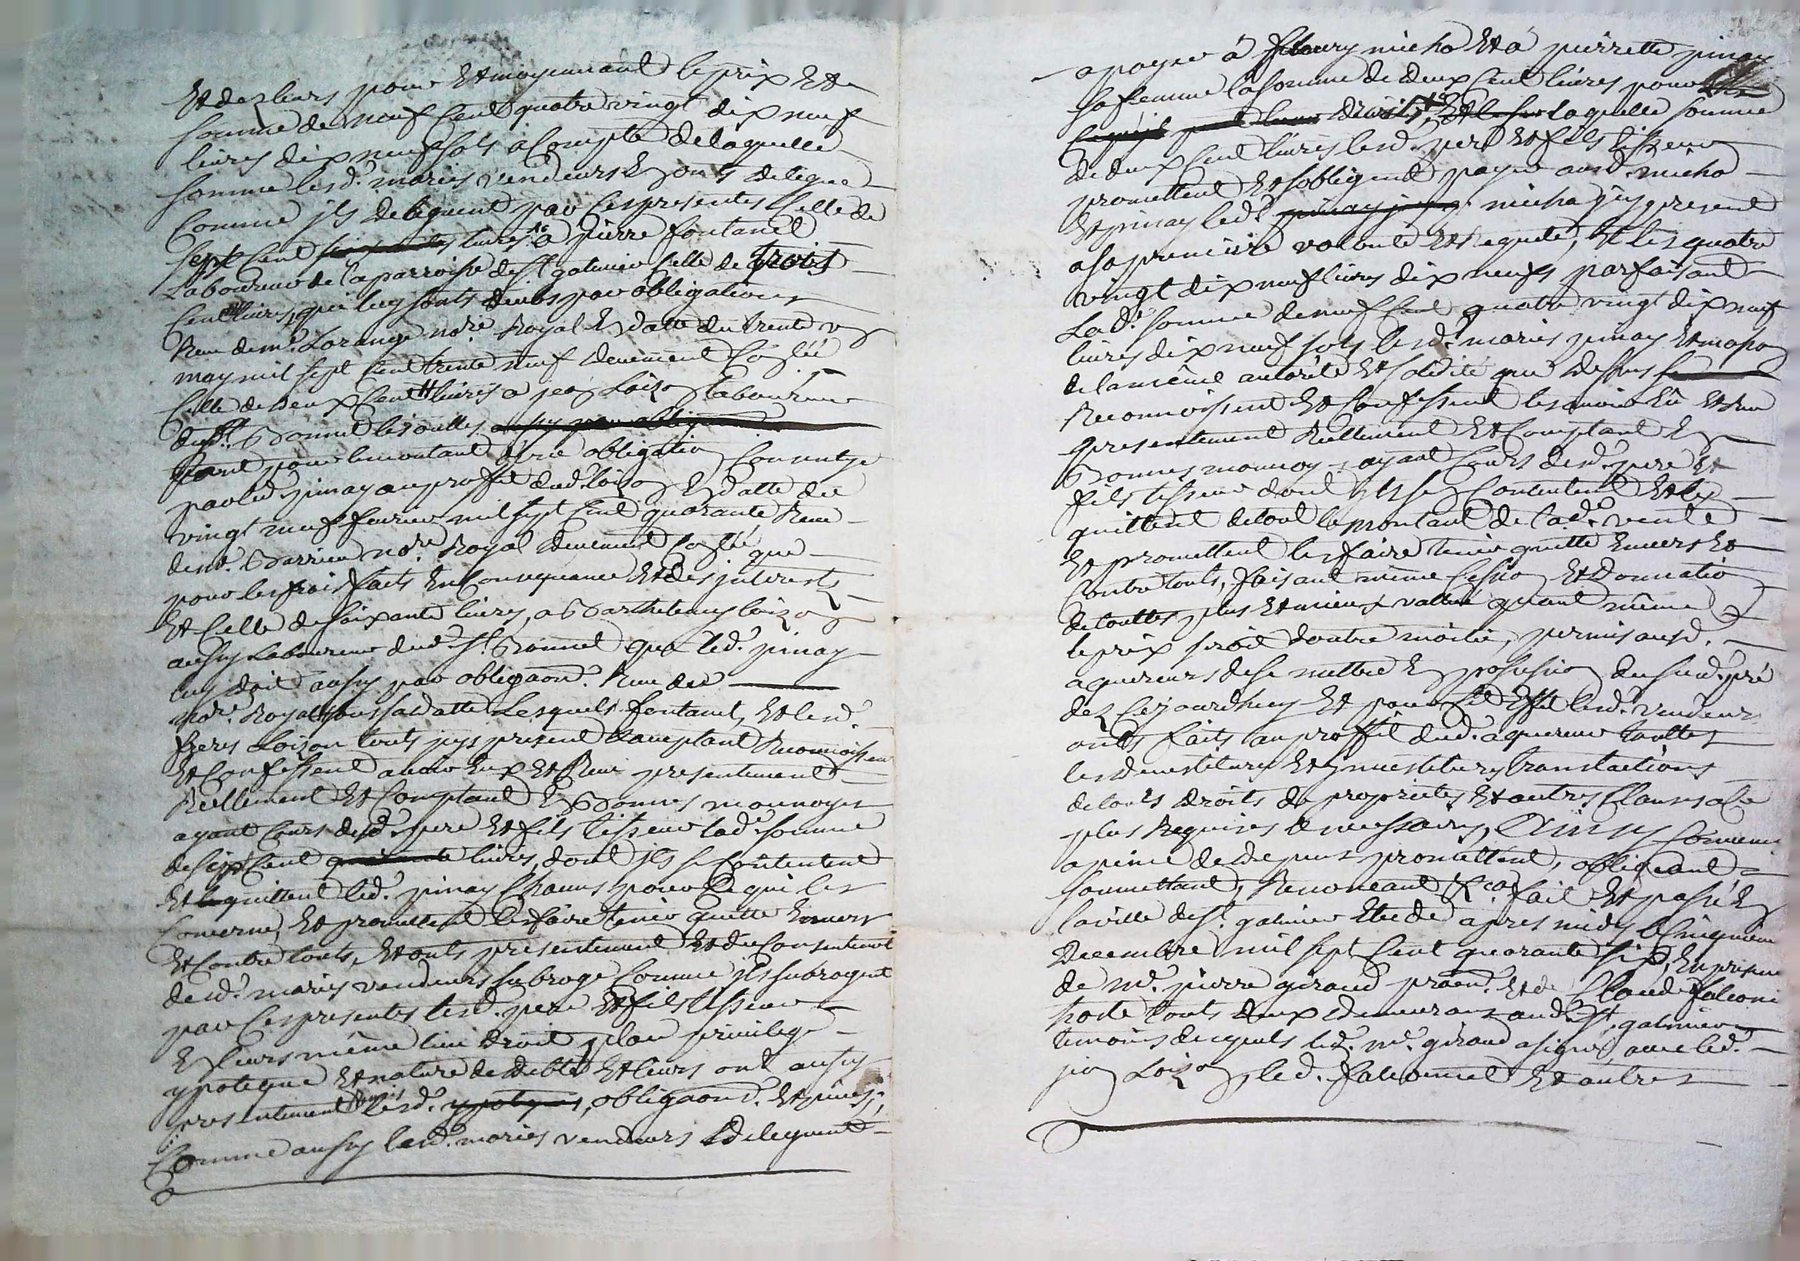 Et des leurs pour Et moyennant le prix Et
somme de neuf Cent quatre vingt dix neuf
livres dix neuf sols a Compte de laquelle
somme lesd. mariés vendeurs En onts delegué
Comme ils deleguent par Ces presentes Celle de
sept Cent livres a pierre fontanel
Laboureur de la parroisse de st galmier Celle de trois
Cent livres, qui luy sonts deubs par obligations
Reue de me. Lorange nore. Royal En datte du trente un
may mil sept Cent trente neuf deuement
Celle de deux Cent livres a jean Loizon laboureur
dud. st. Bonnet les oulles aussy par obligation
pour le montant d'une obligation Consentye
par led. pinay au proffit dud. loizon En datte du
vingt neuf fevrier mil sept Cent quarante Reue
de me. Barrieu nore. Royal deuement que
pour les frais faits En Consequence Et des interests
Et Celle de soixante livres, a Barthelemy loizon
aussy Laboureur dud. st. Bonnet que led. pinay
luy doit aussy par obligaond. Reue dud.
nore. Royal sous sa datte Lesquels fontanel, Et lesd.
freres Loizon touts icy present Acceptant Reconnoissent
Et Confessent avoir Eux Et Reue presentement
Réellement Et Comptant En Bonnes monnoyes
ayant Cours desd. pere Et fils tisseur lad. somme
de sept Cent livres, dont ils se Contentent
Et quittent led. pinay Chacuns pour Ce qui les
Concerne, Et promettent les faire tenir quitte Envers
Et Contre touts, Et onts presentement Et du Consentement
desd. mariés vendeurs subrogé Comme ils subrogent
par Ces presentes lesd. pere Et fils tisseur
En leurs même lieu droit place privilege
ypoteque Et nature de debte Et leurs ont aussy
presentement remis lesd. obligaond. Et pieces;
Comme aussy lesd. mariés vendeurs deleguent
a payer à fleury micho Et à pierrette pinay
sa femme la somme de deux Cent livres pour
leurs droits, laquelle somme
de deux Cent livres lesd. pere Et fils tisseur
promettent Et s'obligent payer aud. micho
Et pinay led. micho icy present
a sa premiere volonté Et Requete, Et les quatre
vingt dix neuf livres dix neufs parfaisant
lad. somme de neuf Cent quatre vingt dix neuf
livres dix neuf sols lesd. mariés pinay
de la même autorité Et solidité que dessus
Reconnoissent Et Confessent les avoir Eü Et Reue
presentement Réellement Et Comptant En
Bonnes monnoyes ayant Cours desd. pere Et
fils tisseur dont ils se Contentent Et les
quittent de tout le montant de lad. vente
Et promettent les faire tenir quitte Envers Et
Contre touts, faisant même Cession Et Donnation
de touttes plus Et mieux vallue quant même
le prix seroit d'outre moitié, permis ausd.
aquereurs de se mettre En possession dusud. pré
dez Cejourdhuy Et pour Cet Effet lesd. vendeurs
onts faits au proffit dud. aquereur touttes
les devestitures Et investitures translactions
de touts droits de proprietés Et autres Clauses a Ce
plus Requises Et necessaires, Ainsy Convenu
a peine de depens promettent, obligeant
soumettant, Renonceant &ca. fait Et passé En
la ville de st. galmier Etude apres midy le Cinquieme
Decembre mil sept Cent quarante six, En presence
de me. pierre giraud praen. Et de Claude falconnet
hoste touts deux demeurans aud. st. galmier
temoins desquels led. me. giraud a signé avec led.
jean Loizon, led. falconnet Et autres